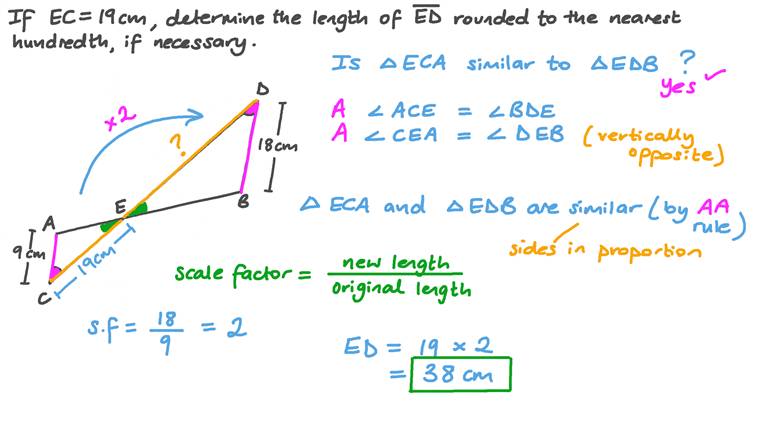 If EC = 19cm, determine the length of E̅D̅ rounded to the nearest
hundredth, if necessary.
Is △ECA similar to △EDB ?
yes ✓
A ∠ACE = ∠BDE
A ∠CEA = ∠DEB (vertically
opposite)
D
×2
?
18cm
B
E
A
9cm
19cm
C
△ECA and △EDB are similar (by AA
rule)
sides in proportion
scale factor = new length
original length
s.f = 18 = 2
9
ED = 19 × 2
= 38 cm